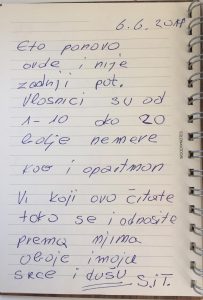 6.6.2018
Eto ponovo
ovde i nije
zadnji put.
Vlasnici su od
1-10 oko 20
bolje nemere
kao i apartman
Vi koji ovo čitate
tako se i odnosite
prema njima
oboje imaju
srce i dušu S.i T.